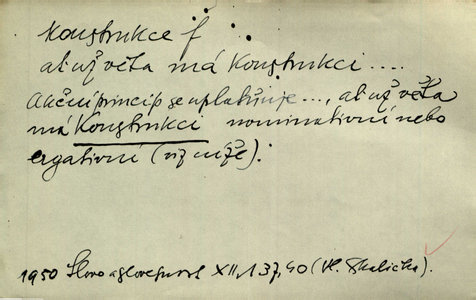 Konstrukce f
ať už věta má Konstrukci ....
Akční princip se uplatňuje ..., ať už věta
má Konstrukci nominativní nebo
ergativní (viz níže).
1950 Slovo a slovesnost XII, 137, 40 (Vl. Skalička).